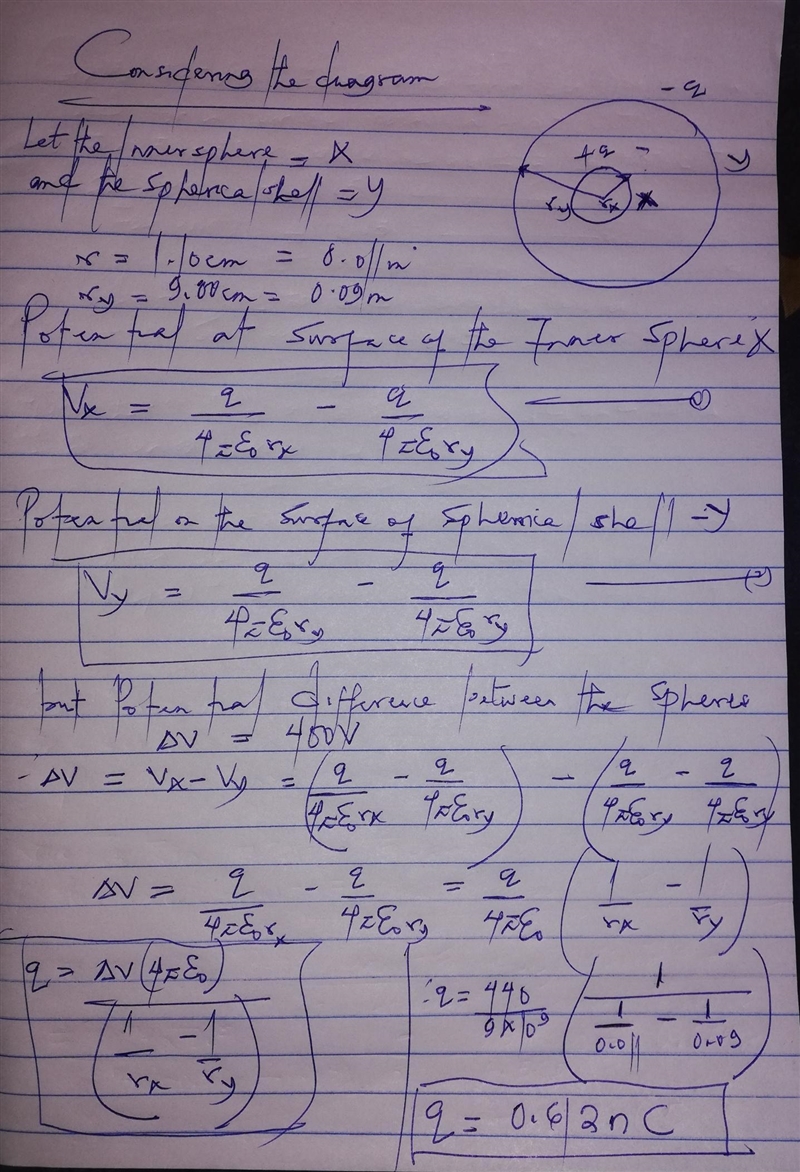 Considering the diagram
- q
Let the Inner sphere = X
+q
y
and the Spherical shell = Y
ry
rx
X
r = 1.10cm = 0.011m
ry = 9.00cm = 0.09m
Potential at Surface of the Inner Sphere X
Vx = q/4πε0rx - q/4πε0ry (1)
Potential on the Surface of Spherical shell - Y
Vy = q/4πε0ry - q/4πε0ry (2)
but Potential difference between the Spheres
ΔV = 400V
∴ ΔV = Vx - Vy = (q/4πε0rx - q/4πε0ry) - (q/4πε0ry - q/4πε0ry)
ΔV = q/4πε0rx - q/4πε0ry = q/4πε0 (1/rx - 1/ry)
q = ΔV(4πε0)/(1/rx - 1/ry)
∴ q = 440/9x10^9 (1/(1/0.011 - 1/0.09))
q = 0.612nC